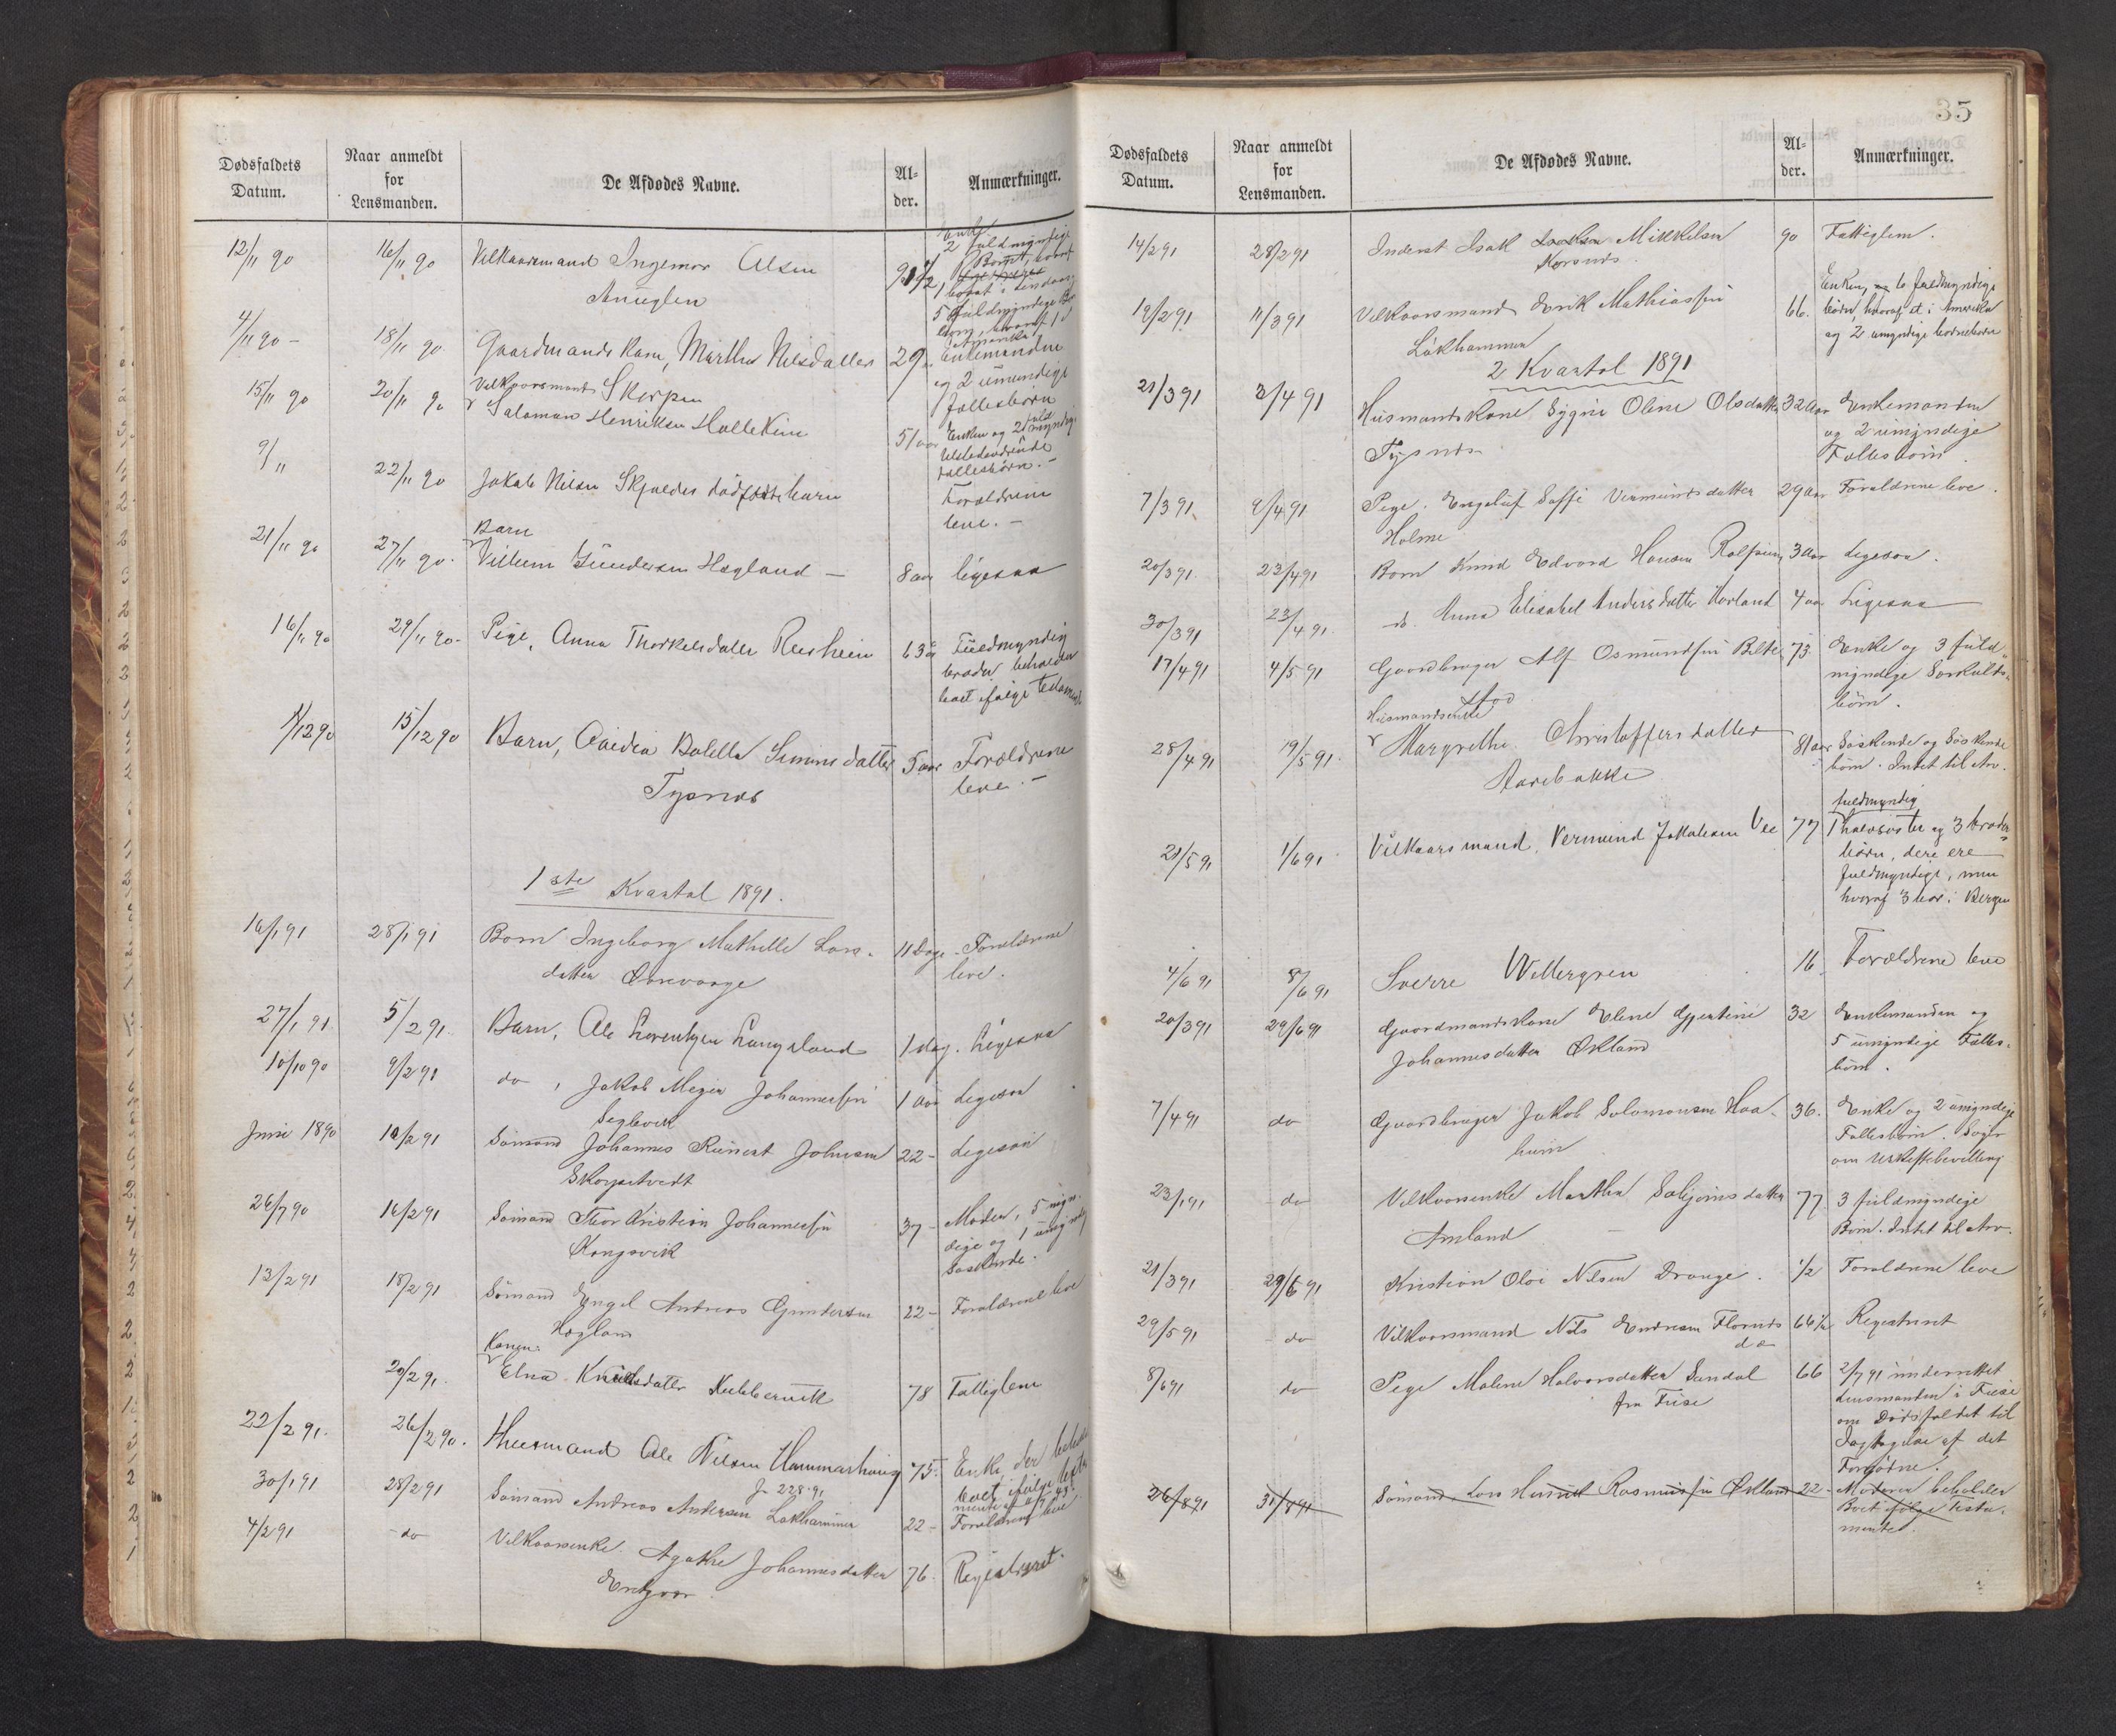 Dødsfaldets Datum.
Naar anmeldt for Lensmanden.
De Afdødes Navne.
Al-der.
Anmærkninger.
12/11 90 16/11 90 Vilkaarsmand Ingemor Olsen
Anuglen
2 fuldmyndige
4/11 90 - 18/11 90 Gaardmands Kone, Martha Nilsdatter 29 Enkemanden
Skorpen og 2 umundige
Fællesbørn
15/11 90 20/11 90 Vilkaarsmand
Salamon Henriksen Hallekin 51 aar Enken og 2 fuldmyndige
tilstedeværende
Fællesbørn. -
9/11 22/11 90 Jakob Nilsen Skjældes dødfødte barn Forældrene
leve. -
21/11 90 27/11 90. Barn
Villum Gundersen Hægland - 8 aar ligesaa
16/11 90 29/11 90- Pige, Anna Thorkelsdatter Reisheim 63 Fuldmyndig
broder beholder
boet ifølge testament
1/12 90 15/12 90 Barn, Bolette Simonsdatter 5 aar Forældrene
Tysnes leve. -
1ste Kvartal 1891.
16/1 91 28/1 91 Barn Ingeborg Mathilde Lars- 11 Dage - Forældrene
datter Ørrevaage leve.
27/1 91. 5/2 91. Barn, Ole Lorentzen Langeland 1 dag. Ligesaa
10/10 90 9/2 91 do, Jakob Meyer Johannessen 1 aar Ligesaa
Seglevik
Juni 1890 10/2 91 Sømand Johannes Reinert Johnsen 22 - Ligesaa
Skorpetvedt
26/7 90 16/2 91 Sømand Thor Kristian Johannessen 37 - Moder, 5 myn-
Kongsvik dige og 1 umyndig
Søskende.
13/2 91 18/2 91 Sømand Engel Andreas Gundersen 22 - Forældrene leve
Hægland
20/2 91. Konen
Elna Knutsdatter Kubbervik 78 Fattiglem
22/2 91. 26/2 90. Huusmand Ole Nilsen Hammarhaug 75. Enke, der beholder
boet ifølge testa
30/1 91 28/2 91 Sømand Andreas Andersen Lokhammer 22 - Forældrene leve
4/2 91 - do Vilkaarsenke. Agathe Johannesdatter 76. Registreret.
35
Dødsfaldets Datum.
Naar anmeldt for Lensmanden.
De Afdødes Navne.
Al-der.
Anmærkninger.
14/2 91 28/2 91 Inderst Isak Mikkelsen 90 Fattiglem.
19/2 91 11/3 91 Vilkaarsmand Erik Mathiassen 66. Enken, 6 fuldmyndige
børn, hvoraf et i Amerika
Lokhammer og 2 umyndige børnebørn
2 Kvartal 1891
21/3 91 3/4 91 Husmandskone Sygni Oline Olsdatter 32 aar Enkemanden
Tysnes og 2 umyndige
Fællesbørn.
7/3 91 9/4 91 Pige. Engeluf Soffi Vermundsdatter 29 aar Forældrene leve.
Holme
20/3 91. 23/4 91 Barn Knud Edvard Hansen Rolfsnes 3 aar Ligesaa.
30/3 91 23/4 91. do. Anna Elisabet Andersdatter Hovland 4 aar Ligesaa
17/4 91 4/5 91 Gaardbruger Alf Osmundsen Belte- 73. Enke og 3 fuld-
stad myndige Særkulds-
børn.
28/4 91 19/5 91. Husmandsenke
Margrethe Christoffersdatter 81 aar Søskende og Søskende
Aarebakke børn. Intet til Arv.
21/5 91 1/6 91. Vilkaarsmand, Vermund Jakobsen Vee 77 fuldmyndig
1 halvsøster og 3 broder-
børn, dere ere
fuldmyndige, men
hvoraf 3 bor i Bergen
4/6 91 8/6 91 Sverre Wettergren 16 Forældrene leve
20/3 91 29/6 91 Gaardmandskone Elene Gjertine 32 Enkemanden og
Johannesdatter Økland 5 umyndige Fælles-
børn.
7/4 91 do Gaardbruger Jakob Salomonsen Haa- 36. Enke og 2 umyndige
heim Fællesbørn. Søger
om Uskiftebevilling
23/1 91 - do Vilkaarsenke Martha Sæbjørnsdatter 77. 3 fuldmyndige
Amland Børn. Intet til Arv.
21/3 91 29/6 91 Kristian Olai Nilsen Drange. 1/2 Forældrene leve
29/5 91 - do Vilkaarsmand Nils Endresen Flornes 66 1/2 Registreret
do
8/6 91 do Pige Malene Halvorsdatter Sandal 66 2/7 91 underrettet
fra Fuse Lensmanden i Fuse
om Dødsfaldet til
Iagttagelse af det
Fornødne.
26/8 91 31/8 91 Sømand Lars Rasmussen Økland 22 - Moderen beholder
Boet ifølge Testa-
mente.